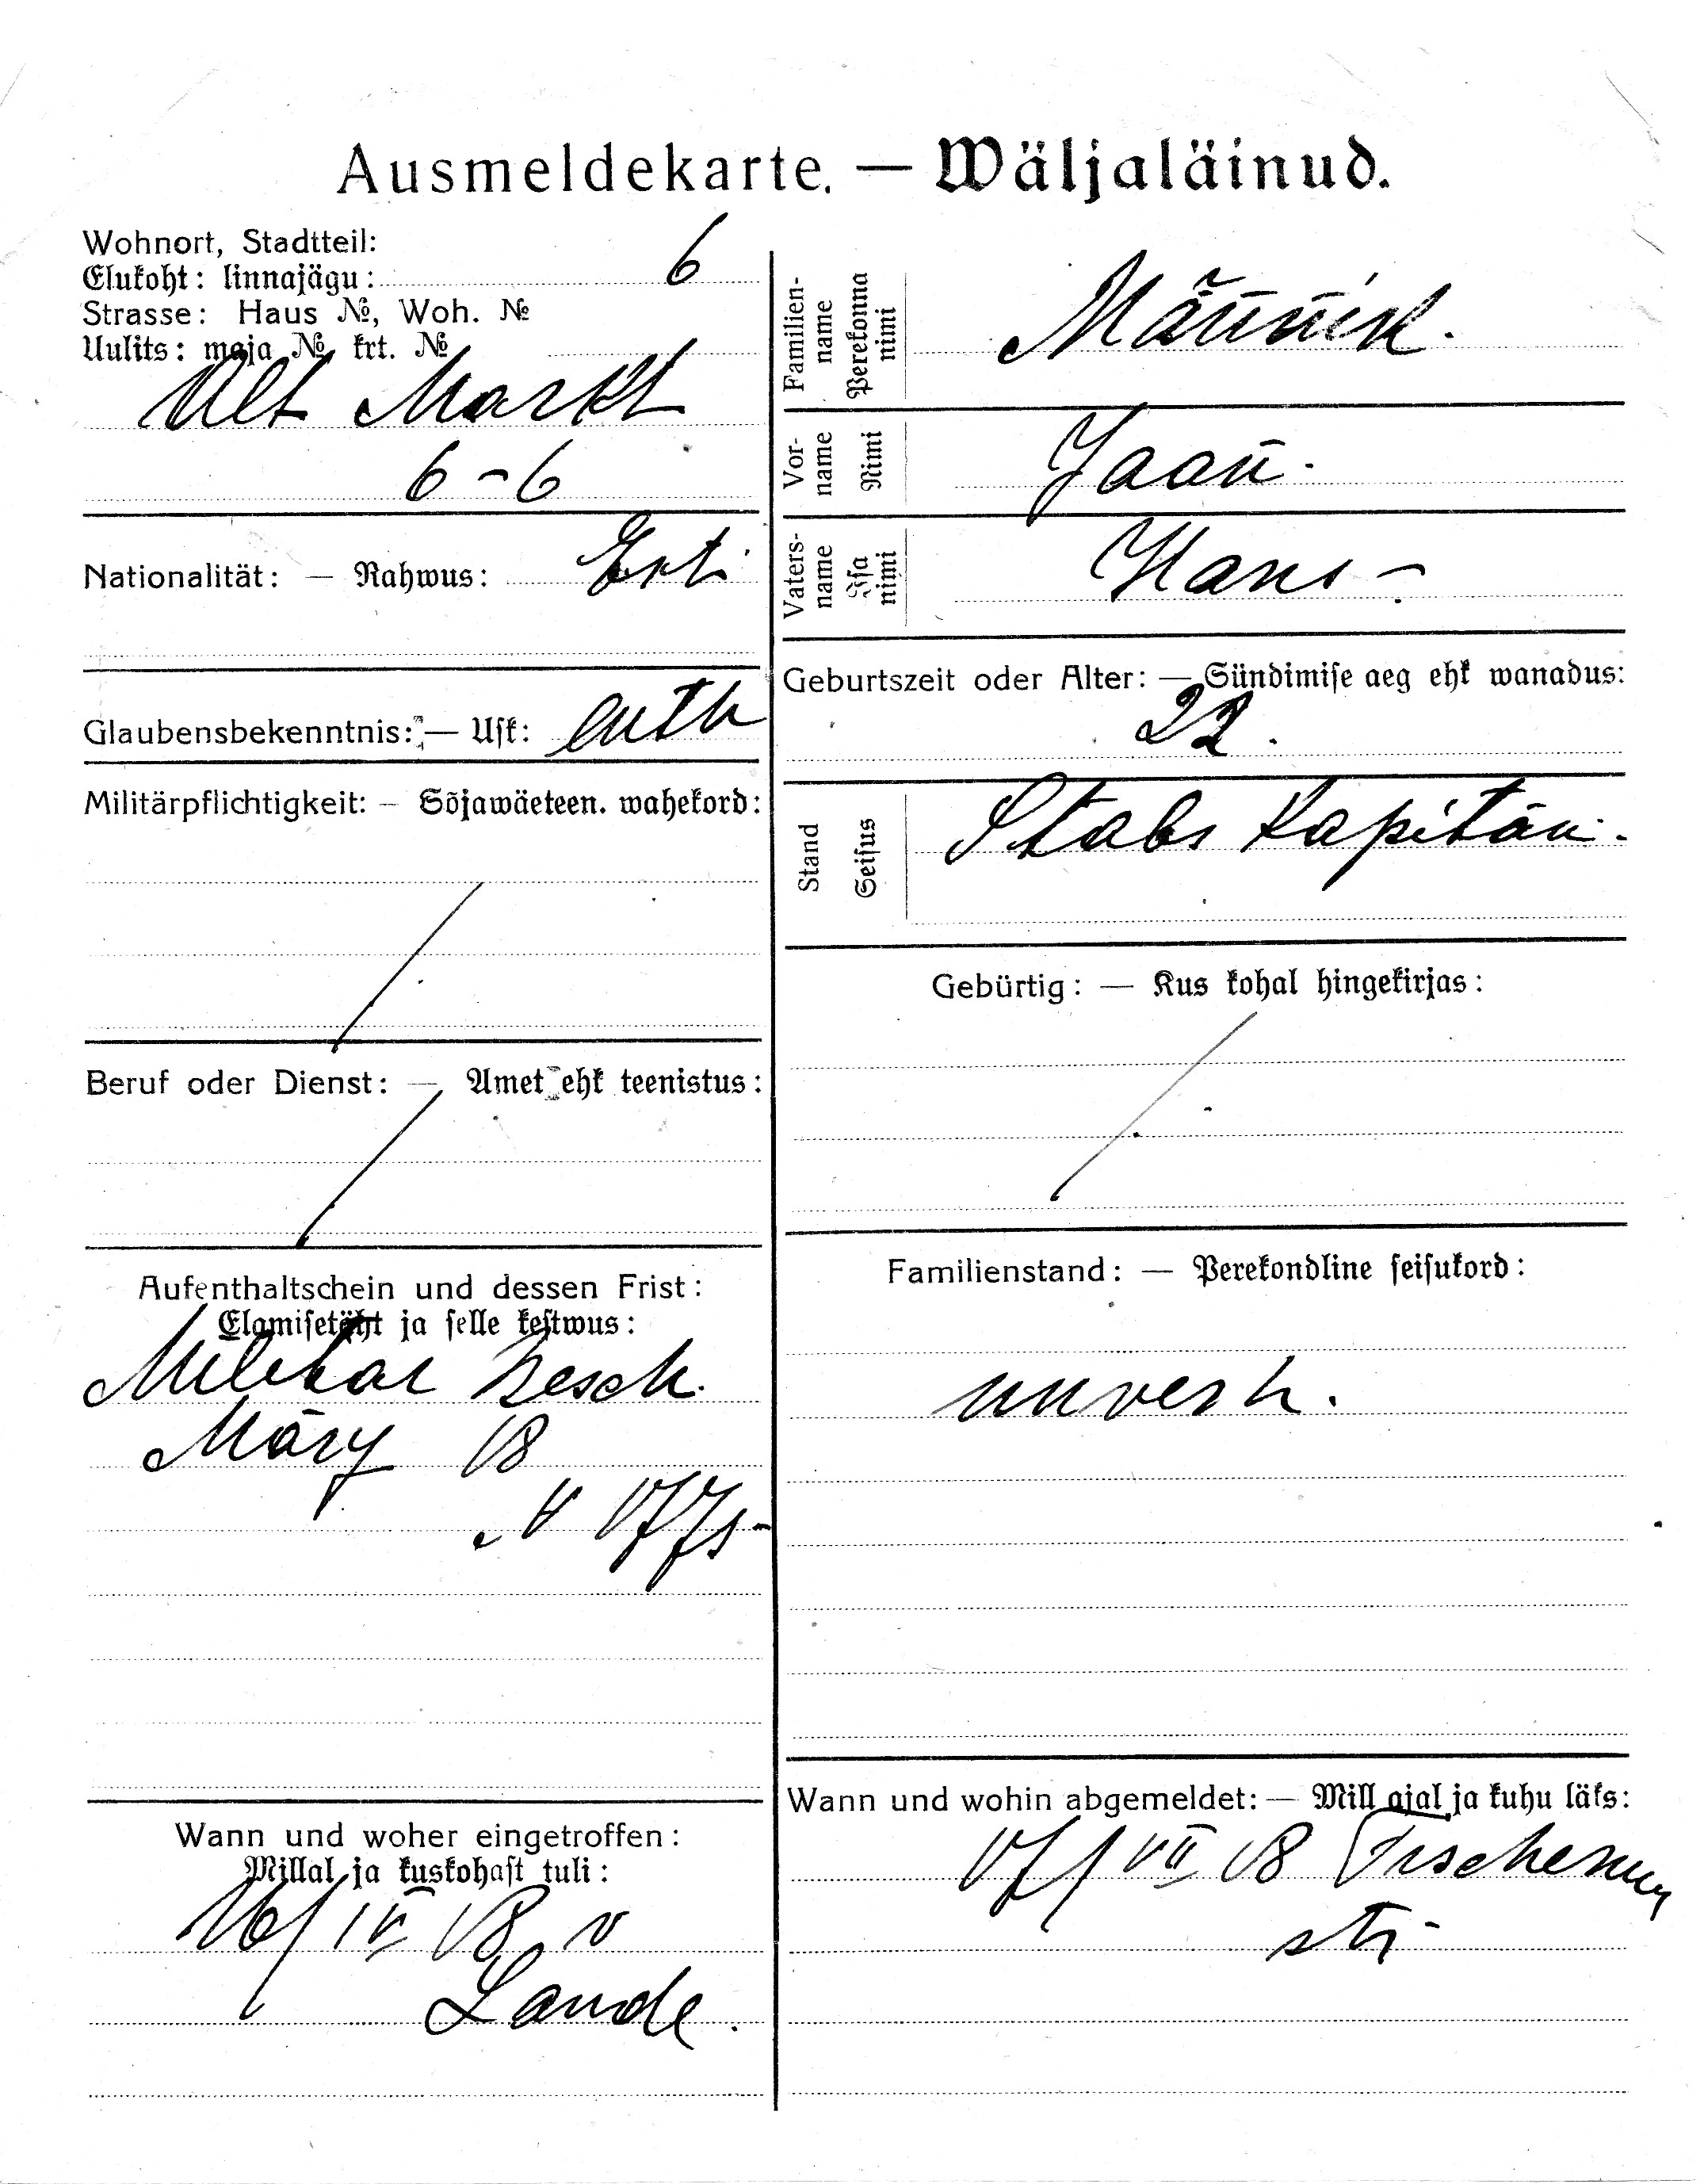 Ausmeldekarte. — Wäljaläinud.
Wohnort, Stadtteil:
Elukoht: linnajägu: 6
Strasse: Haus №, Woh. №
Uulits: maja № krt. №
Alt Markt
6 - 6
Nationalität: — Rahwus: Esti
Glaubensbekenntnis: — Usk: luth
Militärpflichtigkeit: — Sõjawäeteen. wahekord:
Beruf oder Dienst: — Amet ehk teenistus:
Aufenthaltschein und dessen Frist:
Elamisetäht ja selle kestwus:
Militar Besch.
März 18
Wann und woher eingetroffen:
Millal ja kuskohast tuli:
16/ IV 18 v
Lande.
Familien-
name
Perekonna
nimi
Männik.
Vor-
name
Nimi
Jaan.
Vaters-
name
Isa
nimi
Hans -
Geburtszeit oder Alter: — Sündimise aeg ehk wanadus:
22.
Stand
Seisus
Stabs Kapitän.
Gebürtig: — Kus kohal hingekirjas:
Familienstand: — Perekondline seisukord:
unverh.
Wann und wohin abgemeldet: — Mill ajal ja kuhu läks:
17/ VII 18